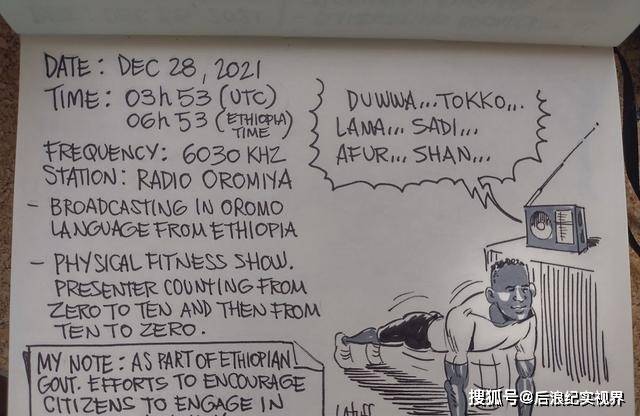 DATE: DEC 28, 2021
TIME: 03h53 (UTC)
06h53 (ETHIOPIA TIME)
FREQUENCY: 6030 KHZ
STATION: RADIO OROMIYA
- BROADCASTING IN OROMO
LANGUAGE FROM ETHIOPIA
- PHYSICAL FITNESS SHOW.
PRESENTER COUNTING FROM
ZERO TO TEN AND THEN FROM
TEN TO ZERO.
MY NOTE: AS PART OF ETHIOPIAN
GOVT. EFFORTS TO ENCOURAGE
CITIZENS TO ENGAGE IN
DUWWA... TOKKO...
LAMA... SADI...
AFUR... SHAN...
LATUFF
搜狐号@后浪纪实视界